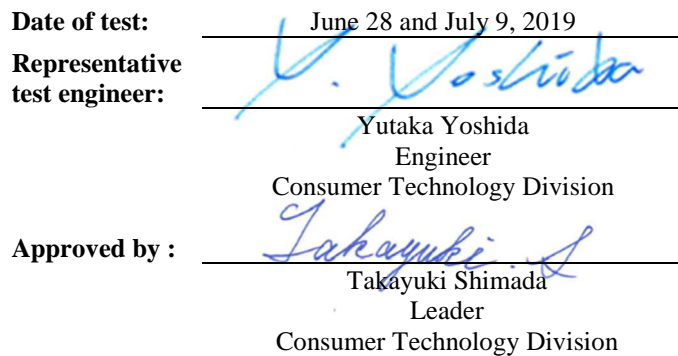 Date of test: June 28 and July 9, 2019
Representative
test engineer: Y. Yoshida
Yutaka Yoshida
Engineer
Consumer Technology Division
Approved by : Takayuki. S
Takayuki Shimada
Leader
Consumer Technology Division